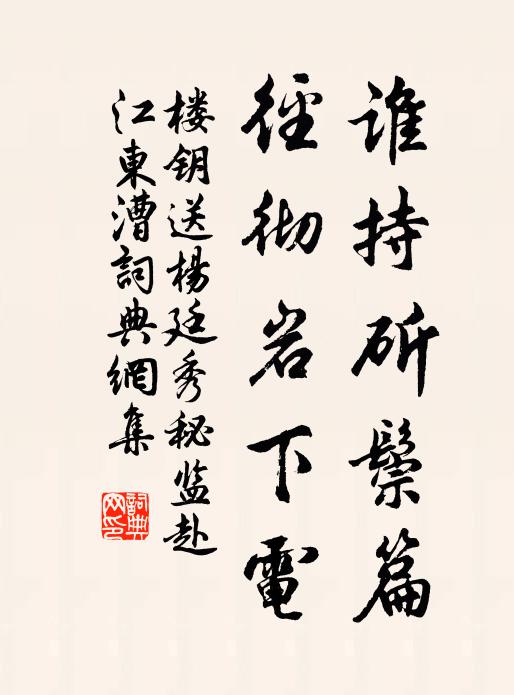 谁持斫鬃篇
径彻岩下電
楼钥送楊廷秀秘监赴
江東漕詞典網集
詞典
网印